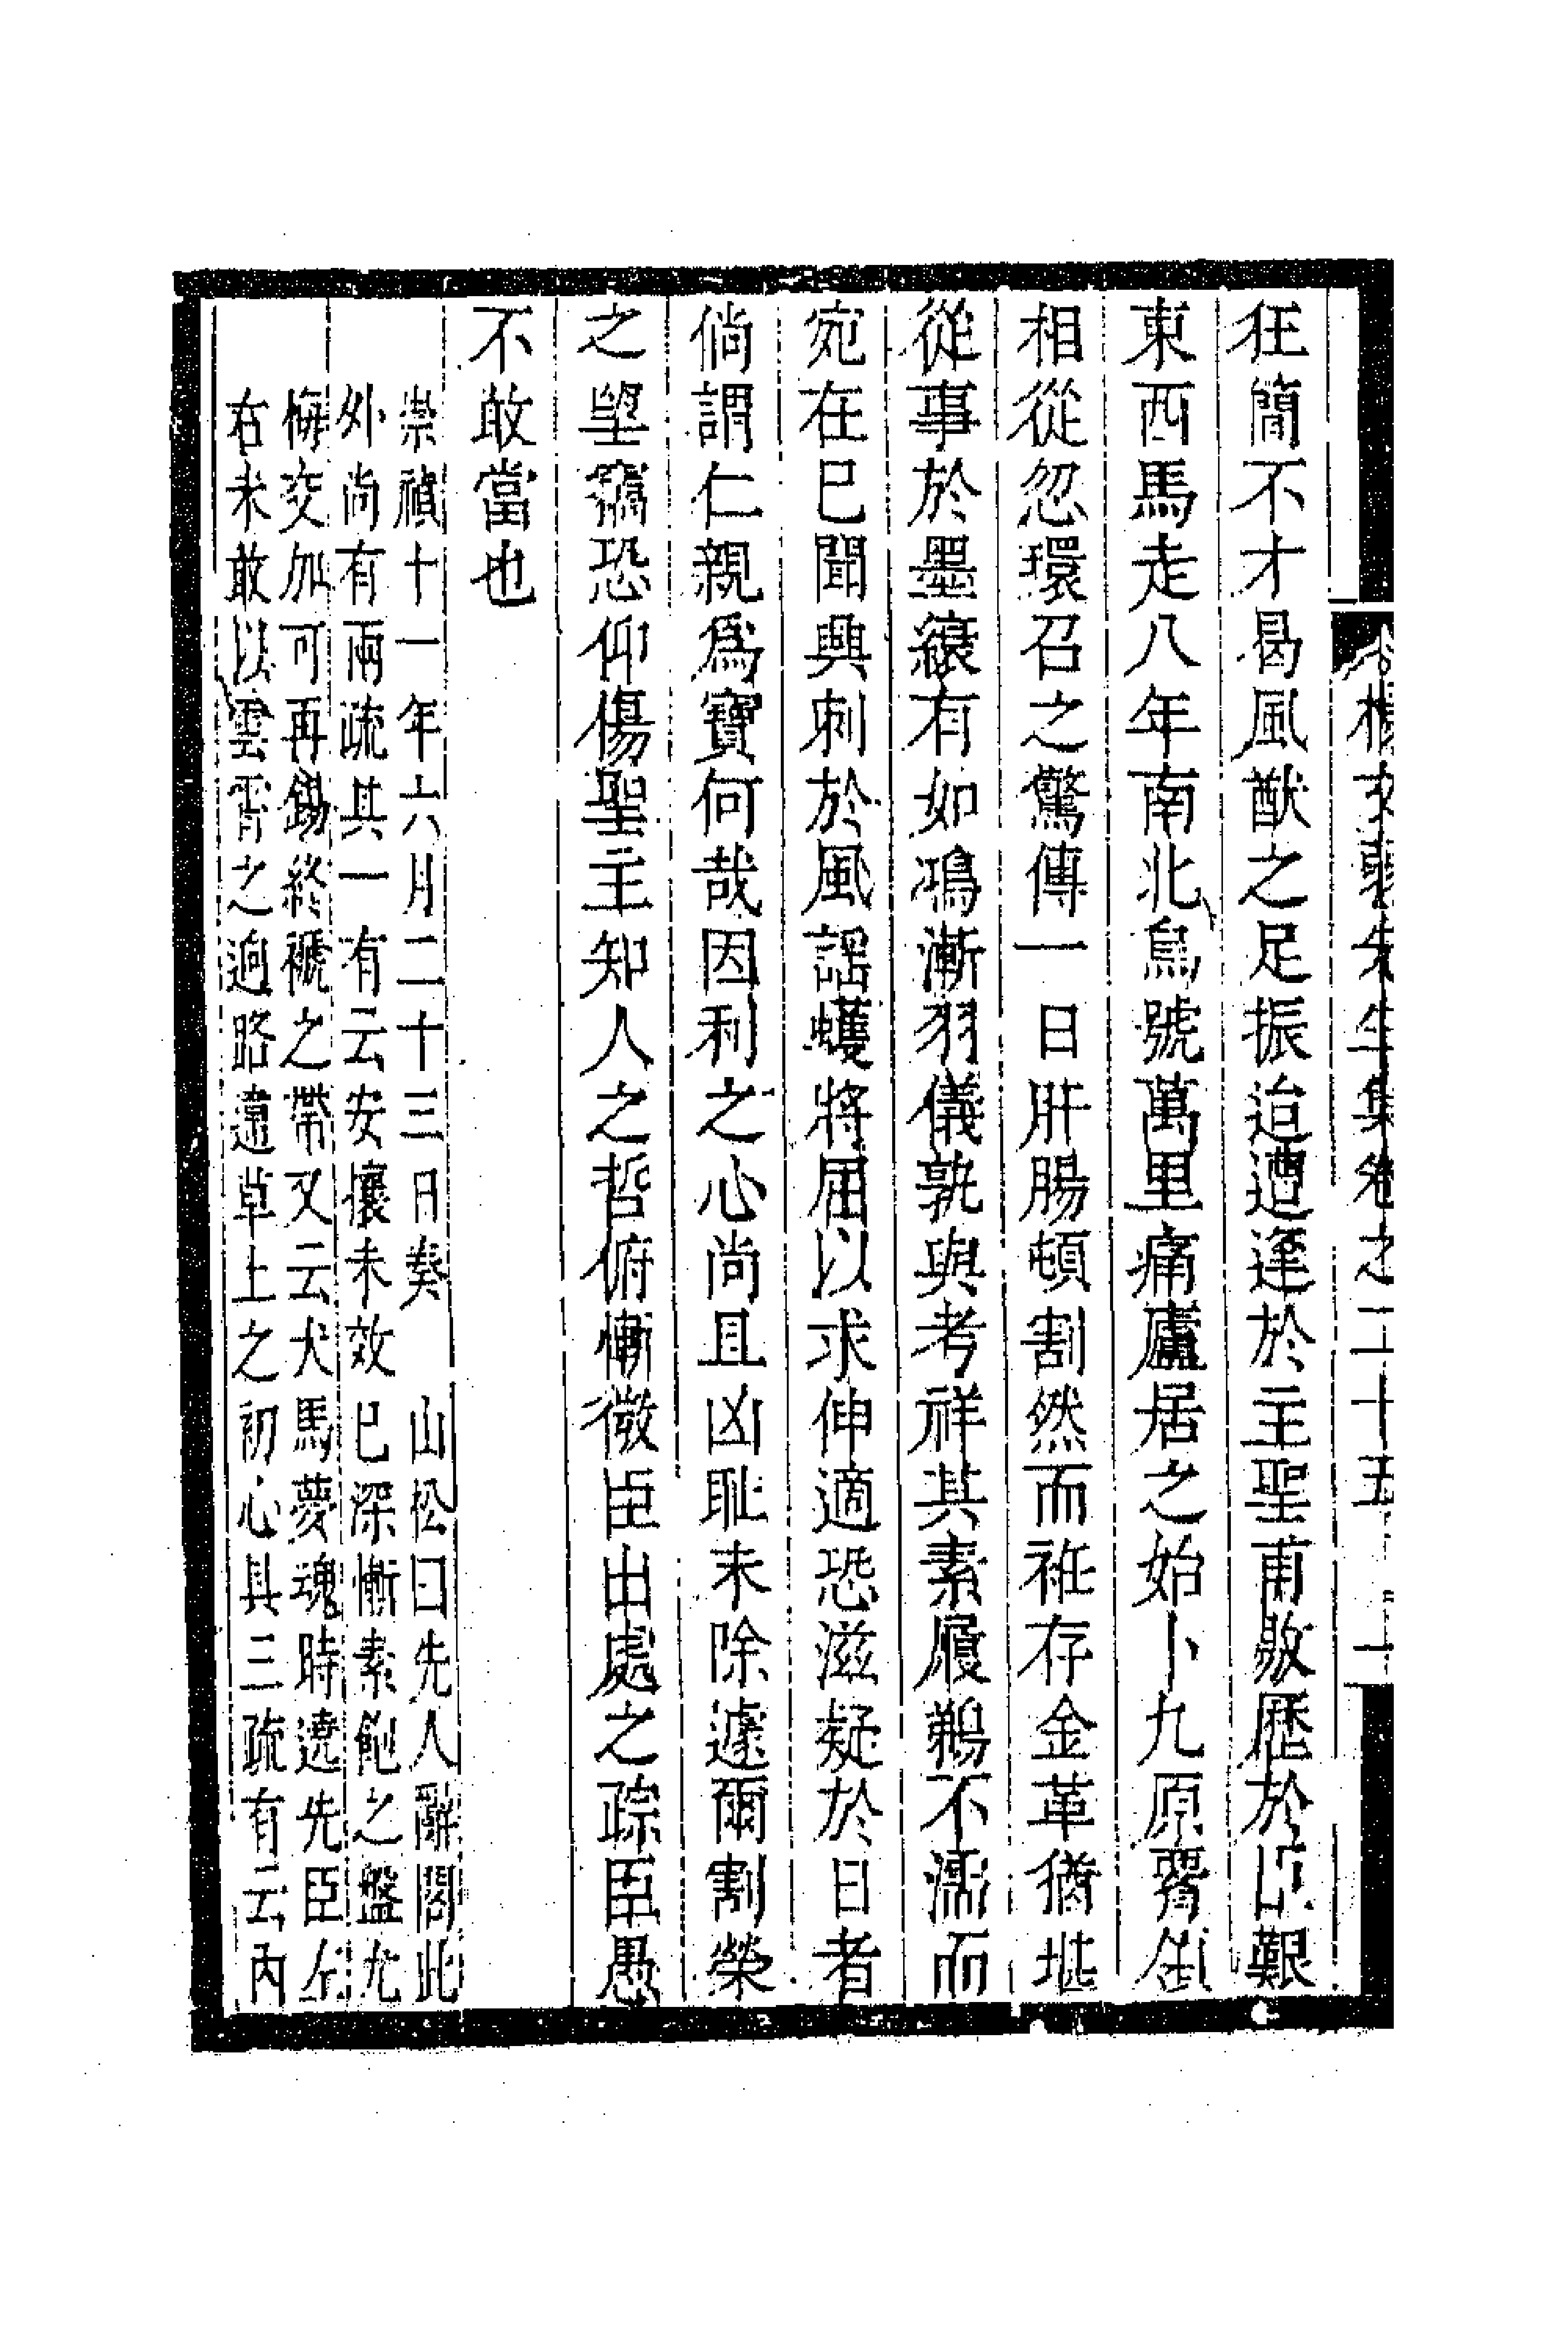 楊文弱先生集卷之二十五
狂簡不才曷風猷之足振迨遭逢於主聖甫敭歷於艱
東西馬走八年南北烏號萬里痛廬居之始卜九原胥
相從忽環召之驚傳一日肝腸頓割然而衽存金革猶堪
從事於墨縗有如鴻漸羽儀孰與考祥其素履鵜不濡而
宛在已聞興刺於風謡蠖將屈以求伸適恐滋疑於日者
倘謂仁親爲寶何哉因利之心尚且凶耻未除遽爾割榮
之望竊恐仰傷聖主知人之哲俯慚微臣出處之踪臣愚
不敢當也
崇禎十一年六月二十三日奏　山松曰先人辭閣此
外尚有兩疏其一有云安攘未效已深慚素飽之盤尤
悔交加可再錫終褫之帶又云犬馬夢魂時遶先臣左
右未敢以雲霄之迥略違草土之初心其三疏有云内